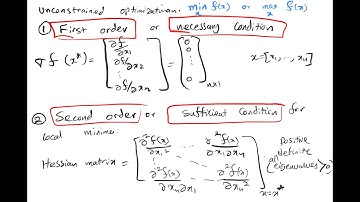 Unconstrained optimization. min f(x) or max f(x)
x x
① First order or necessary condition
∇ f (x*) = [∂f/∂x₁ ∂f/∂x₂ ⋮ ∂f/∂xₙ] = (0 0 ⋮ 0) n×1 x=[x₁, ..., xₙ]
② Second order or Sufficient Condition for
local minima:
Hessian matrix = [∂²f(x)/∂x₁² ... ∂²f(x)/∂x₁∂xₙ ⋮ ∂²f(x)/∂xₙ∂x₁ ... ∂²f(x)/∂xₙ²] x=x*
positive
definite
(all
eigenvalues >